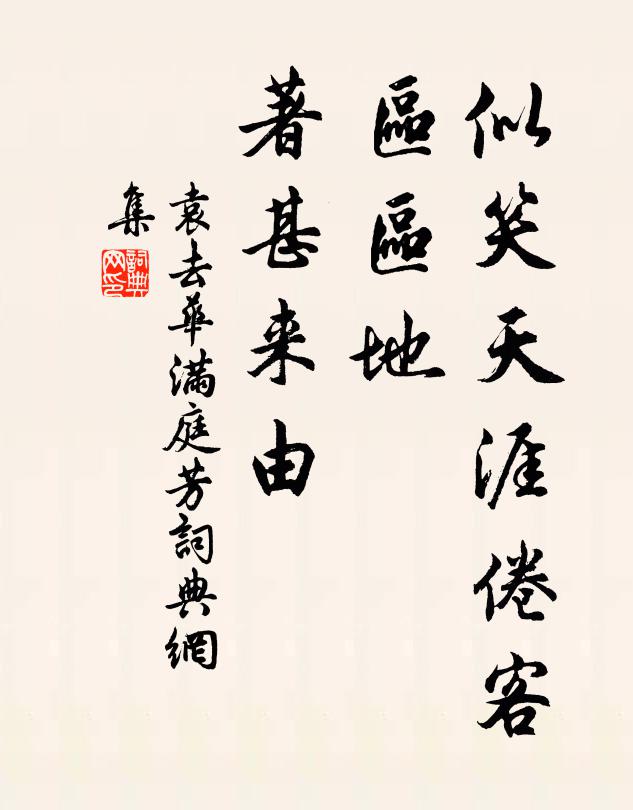 似笑天涯倦客
區區地
著甚来由
袁去華滿庭芳詞典網
集
詞典
网印